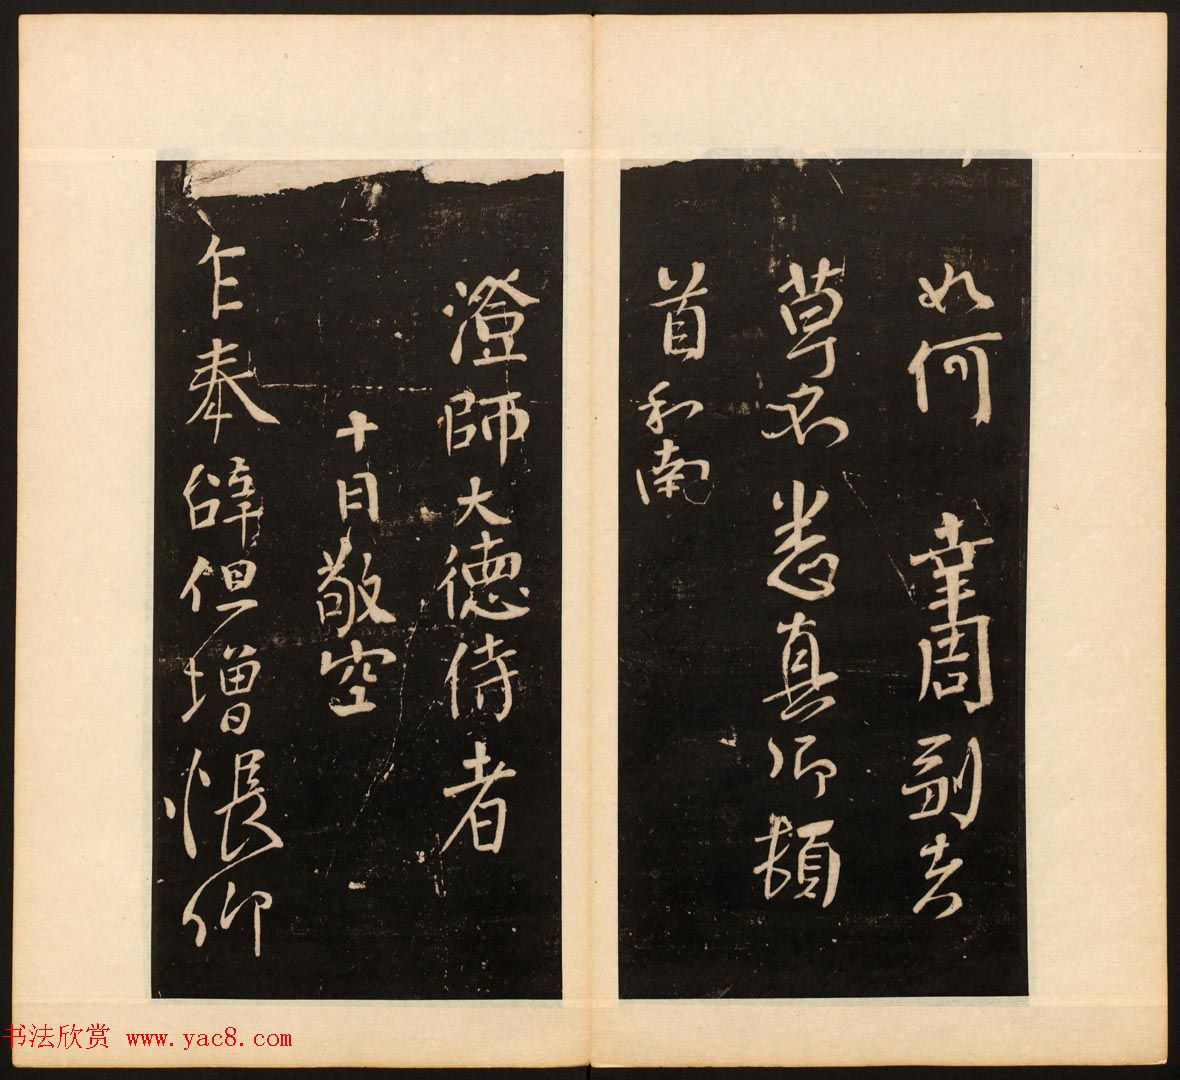 如何幸周副
草不悉真卿頓
首和南
澄師大德侍者
十日敬空
乍奉辭但增悵仰
书法欣赏 www.yac8.com